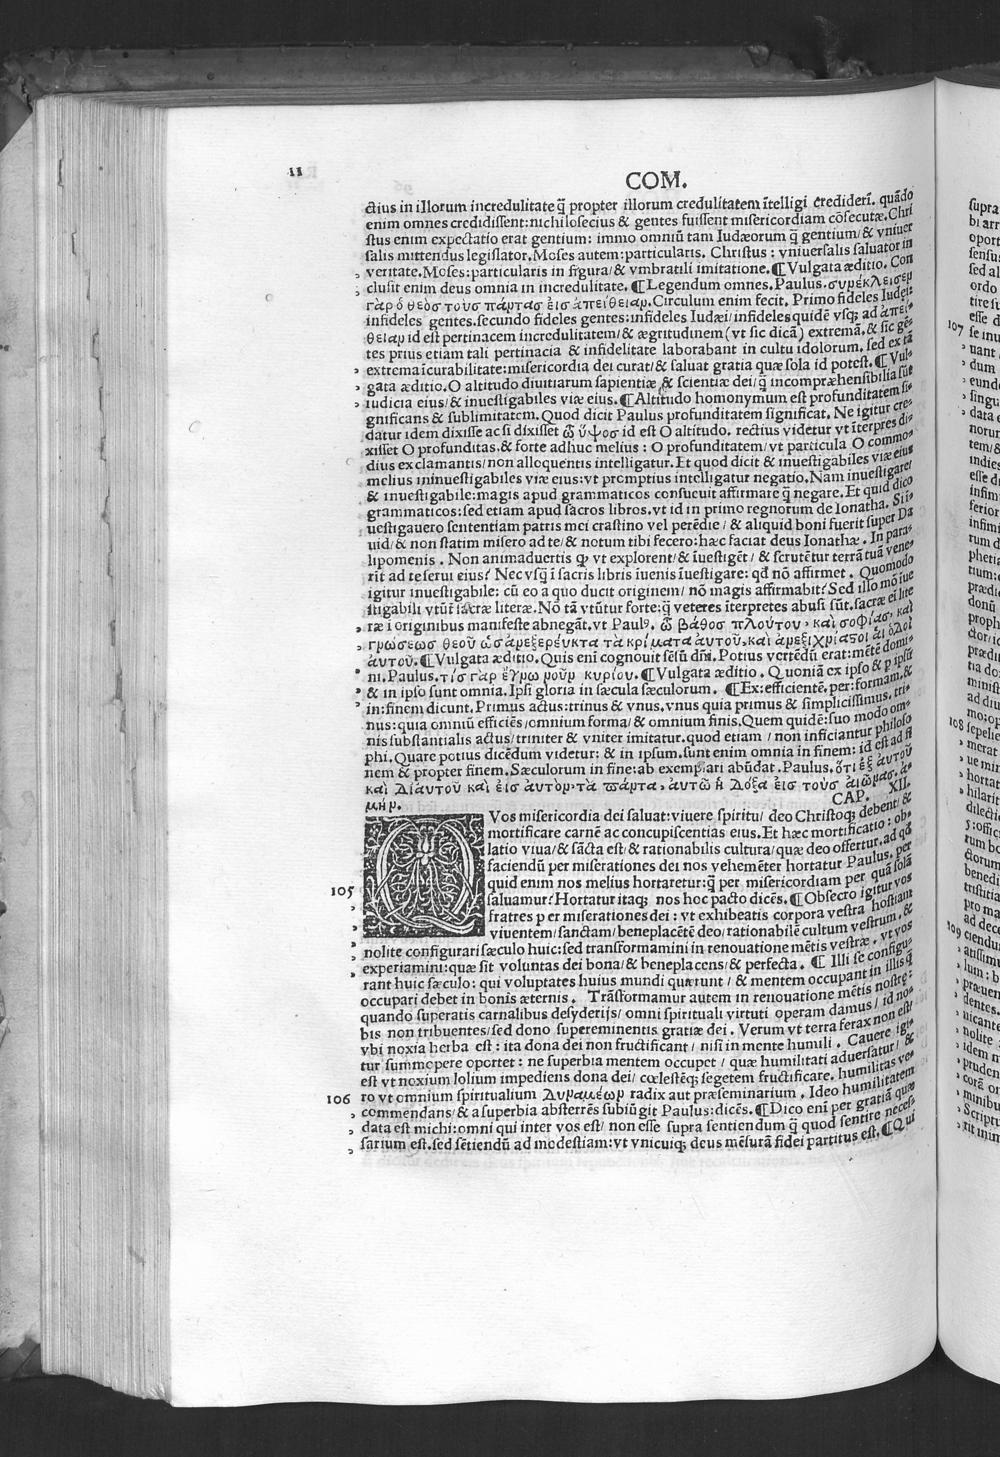 11
COM.
ctius in illorum incredulitate q̃ propter illorum credulitatem ĩtelligi crediderĩ. quãdo
enim omnes credidissent: nichilosecius & gentes fuissent misericordiam cõsecutæ. Chri
stus enim expectatio erat gentium: immo omniũ tam Iudæorum q̃ gentium/ & vniuer
salis mittendus legislator. Moses autem: particularis. Christus: vniuersalis saluator in
veritate. Moses: particularis in figura/ & vmbratili imitatione. ¶ Vulgata æditio. Con
clusit enim deus omnia in incredulitate. ¶ Legendum omnes. Paulus. συνέκλεισεν
γὰρ ὁ θεὸσ τοὺσ πάντασ ἐισ ἀπείθειαν. Circulum enim fecit. Primo fideles Iudęi:
infideles gentes. secundo fideles gentes: infideles Iudæi/ infideles quidẽ vsq; ad ἀπεί-
θειαν id est pertinacem incredulitatem/ & ægritudinem (vt sic dicã) extremã. & sic gẽ-
tes prius etiam tali pertinacia & infidelitate laborabant in cultu idolorum. sed ex tã
extrema ĩcurabilitate: misericordia dei curat/ & saluat gratia quæ sola id potest. ¶ Vul-
gata æditio. O altitudo diuitiarum sapientiæ & scientiæ dei/ q̃ incompræhensibilia sũt
iudicia eius/ & inuestigabiles viæ eius. ¶ Altitudo homonymum est profunditatem si-
gnificans & sublimitatem. Quod dicit Paulus profunditatem significat. Ne igitur cre-
datur idem dixisse ac si dixisset ὦ ὕψοσ id est O altitudo. rectius videtur vt ĩterpres di-
xisset O profunditas. & forte adhuc melius: O profunditatem/ vt particula O commo-
dius exclamantis/ non alloquentis intelligatur. Et quod dicit & inuestigabiles viæ eius
melius ininuestigabiles viæ eius: vt promptius intelligatur negatio. Nam inuestigare/
& inuestigabile: magis apud grammaticos consueuit affirmare q̃ negare. Et quid dico
grammaticos: sed etiam apud sacros libros. vt id in primo regnorum de Ionatha. Si ĩ-
uestigauero sententiam patris mei crastino vel perẽdie/ & aliquid boni fuerit super Da
uid/ & non statim misero ad te/ & notum tibi fecero: hæc faciat deus Ionathæ. In para-
lipomenis. Non animaduertis ꝙ vt explorent/ & ĩuestigẽt/ & scrutẽtur terrã tuã vene-
rĩt ad te serui eius? Nec vsq̃ ĩ sacris libris ĩuenis ĩuestigare: qđ nõ affirmet. Quomodo
igitur inuestigabile: cũ eo a quo ducit originem/ nõ magis affirmabit? Sed illo mõ ĩue
stigabili vtũt̃ ĩ sacræ literæ. Nõ tã vtũtur forte: q̃ veteres ĩterpretes abusi sũt. sacræ ei lite
ræ ĩ originibus manifeste abnegãt. vt Paulꝰ. ὦ βάθοσ πλούτου, καὶ σοφίασ, καὶ
γνώσεωσ θεοῦ ὡσ ἀνεξερέυνητα τὰ κρίματα ἀυτοῦ, καὶ ἀνεξιχνίαστοι ἁι ὁδοὶ
ἀυτοῦ. ¶ Vulgata æditio. Quis enĩ cognouit sẽsũ dñi. Potius vertẽdũ erat: mẽtẽ domi-
ni. Paulus. τίσ γὰρ ἔγνω νοῦν κυρίου. ¶ Vulgata æditio. Quoniã ex ipso & p̱ ipsũ
& in ipso sunt omnia. Ipsi gloria in sæcula sæculorum. ¶ Ex: efficientẽ. per: formam. &
in: finem dicunt. Primus actus: trinus & vnus. vnus quia primus & simplicissimus. tri-
nus: quia omniũ efficiẽs/ omnium forma/ & omnium finis. Quem quidẽ: suo modo om-
nis substantialis actus/ triniter & vniter imitatur. quod etiam/ non inficiantur philoso
phi. Quare potius dicẽdum videtur: & in ipsum. sunt enim omnia in finem: id est ad fi
nem & propter finem. Sæculorum in fine: ab exemplari abũdat. Paulus. ὅτι ἐξ ἀυτοῦ
καὶ διαυτοῦ καὶ ἐισ ἀυτὸν τὰ πάντα, ἀυτῶ ἡ δόξα ἐισ τοὺσ αἰῶνασ. ἀ-
μήν.
CAP. XII.
QVos misericordia dei saluat: viuere spiritu/ deo Christoq; debent/ &
mortificare carnẽ ac concupiscentias eius. Et hæc mortificatio: ob-
latio viua/ & sãcta est/ & rationabilis cultura/ quæ deo offertur. ad qđ
faciendũ per miserationes dei nos vehemẽter hortatur Paulus. per
105
quid enim nos melius hortaretur: q̃ per misericordiam per quã solã
saluamur? Hortatur itaq; nos hoc pacto dicẽs. ¶ Obsecro igitur vos
fratres per miserationes dei: vt exhibeatis corpora vestra hostiam
viuentem/ sanctam/ beneplacẽtẽ deo/ rationabilẽ cultum vestrum. &
nolite configurari sæculo huic: sed transformamini in renouatione mẽtis vestræ. vt vos
experiamini: quæ sit voluntas dei bona/ & beneplacens/ & perfecta. ¶ Illi se configu-
rant huic sæculo: qui voluptates huius mundi quærunt/ & mentem occupant in illis q̃
occupari debet in bonis æternis. Trãsformamur autem in renouatione mẽtis nostrę:
quando superatis carnalibus desyderijs/ omni spirituali virtuti operam damus/ id no-
bis non tribuentes/ sed dono supereminentis gratiæ dei. Verum vt terra ferax non est/
vbi noxia herba est: ita dona dei non fructificant/ nisi in mente humili. Cauere igi-
tur summopere oportet: ne superbia mentem occupet/ quæ humilitati aduersatur/ &
est vt noxium lolium impediens dona dei/ cœlestẽq; segetem fructificare. humilitas ve-
106
ro vt omnium spiritualium δυναμέων radix aut præseminarium. Ideo humilitatem
commendans/ & a superbia absterrẽs subiũgit Paulus: dicẽs. ¶ Dico enĩ per gratiã quæ
data est michi: omni qui inter vos est/ non esse supra sentiendum q̃ quod sentire neces-
sarium est. sed sẽtiendũ ad modestiam: vt vnicuiq; deus mẽsurã fidei partitus est. ¶ Qui
107
108
109